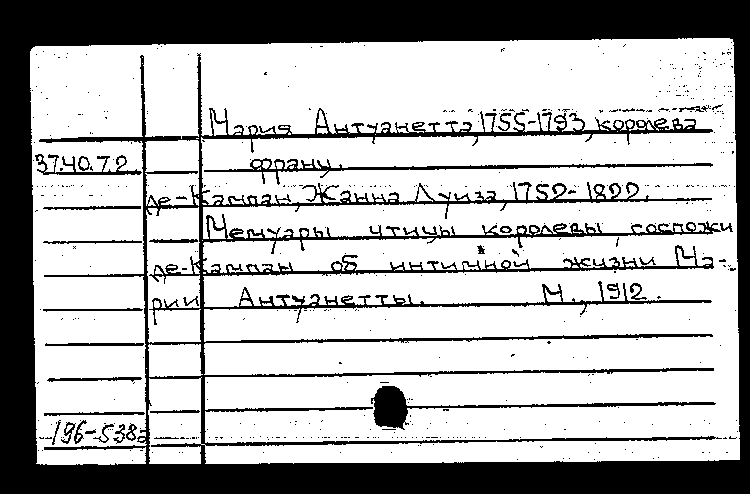 Мария Антуанетта, 1755-1793, королева
37.40.7.2 франц.
де-Кампан, Жанна Луиза, 1752-1822.
Мемуары чтицы королевы госпожи
де-Кампан об интимной жизни Ма-
рии Антуанетты. М., 1912.
196-538а